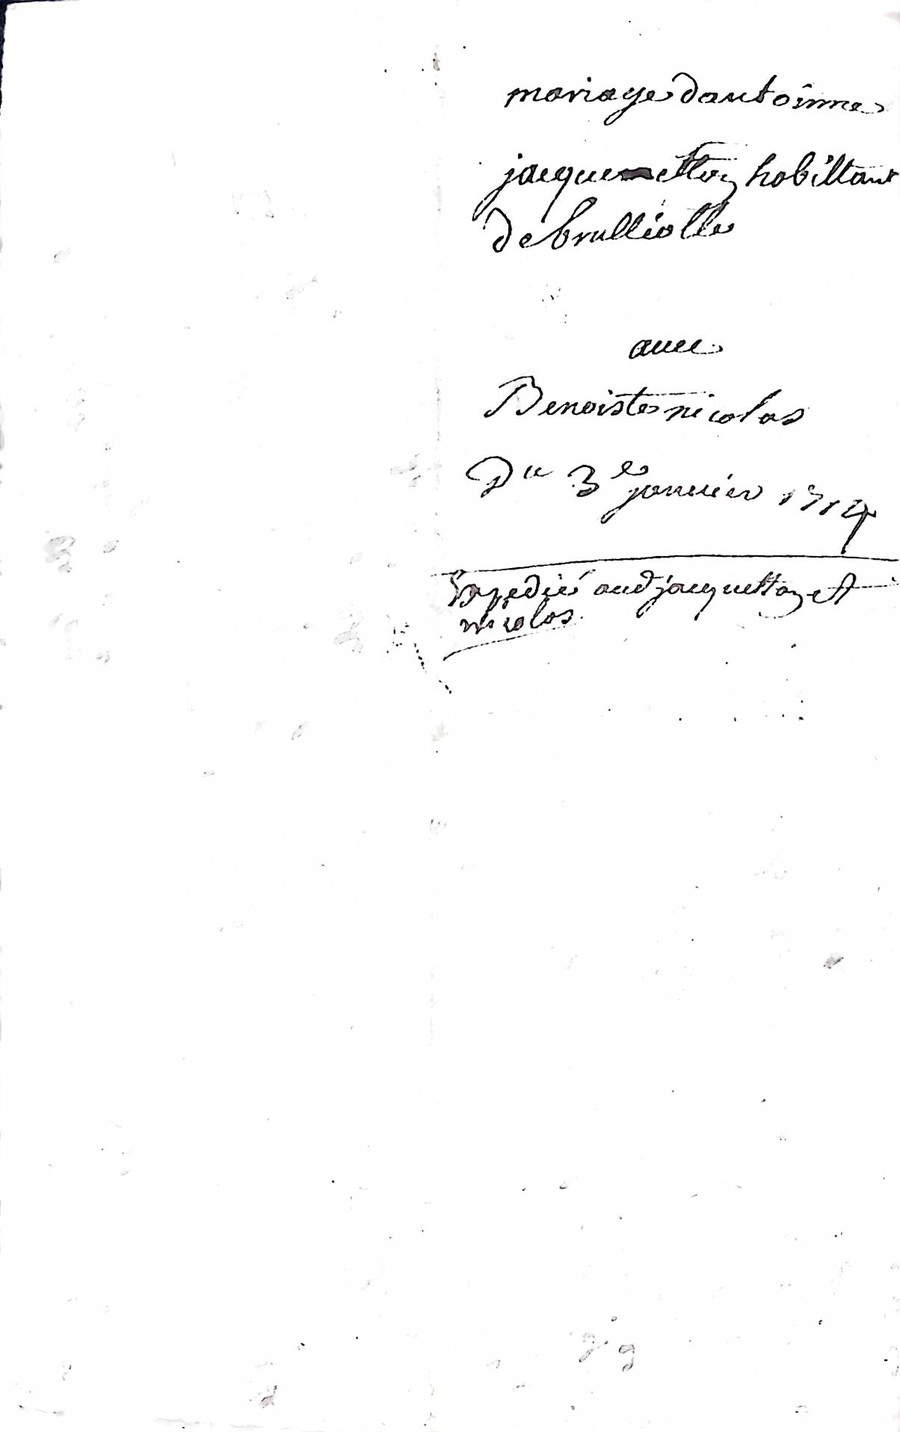 mariage dantoinne
jacquemetton habittant
de brulliolle
auec
Benoiste nicolas
Du 3e janvier 1714
Expedié aud jacquetton et
nicolas